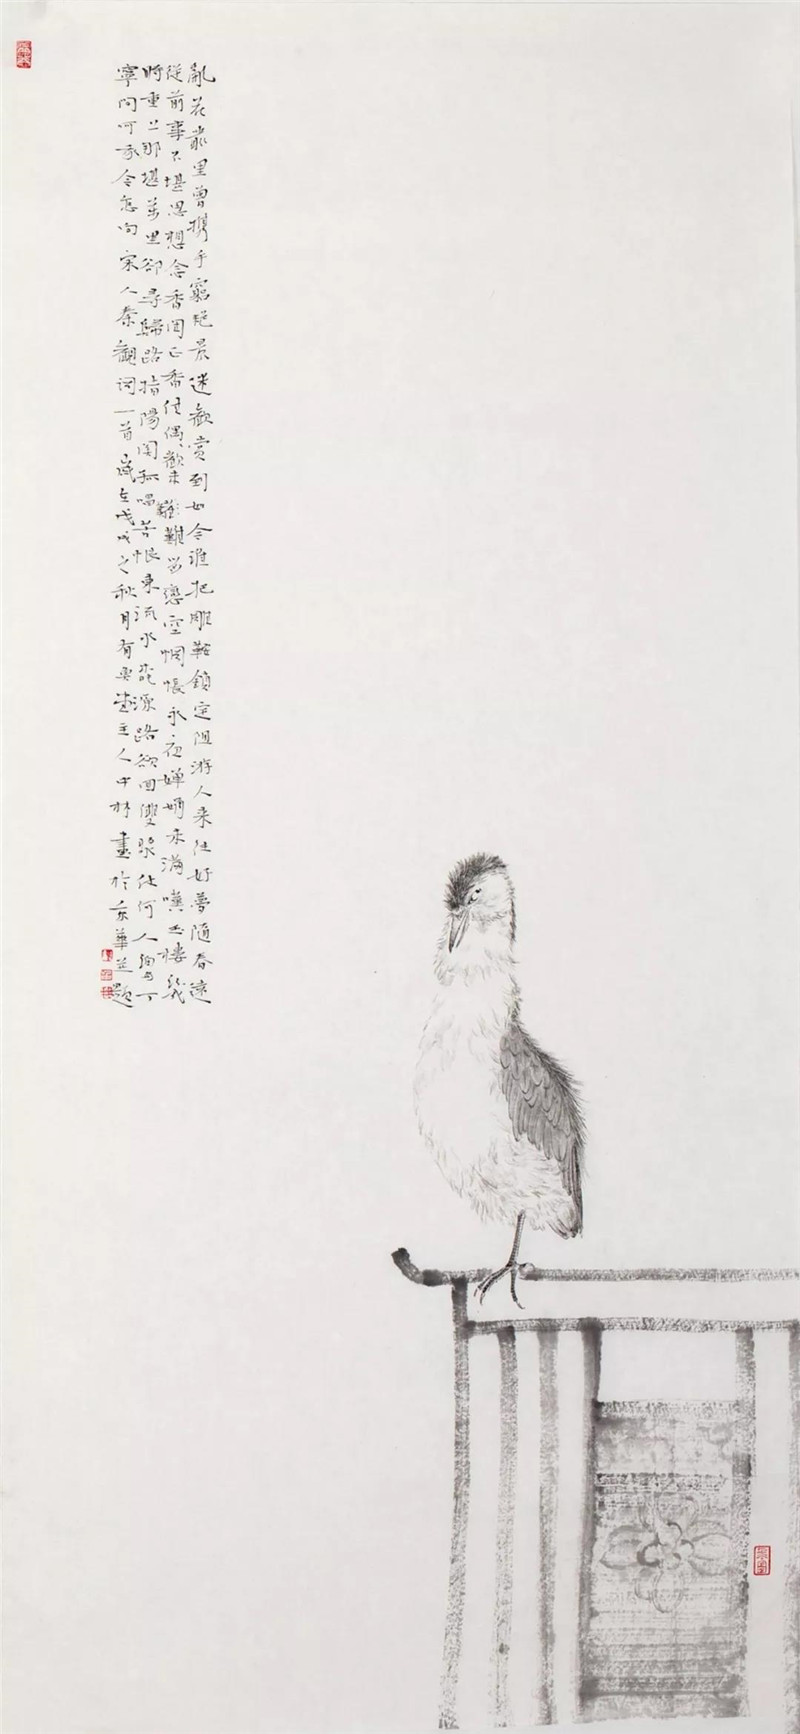 亂花叢里曾攜手窮艷景迷歡賞到如今誰把雕鞍鎖定阻游人來往好夢隨春遠
從前事不堪思想念香閨正香佳偶歡未難留戀空惆悵永夜嬋娟未滿嘆玉樓幾
時重上那堪萬里卻尋歸路指陽關孤唱苦恨東流水桃源路欲回雙槳仗何人細与丁
寧問呵我今怎向宋人秦觀词一首歲在戊戌之秋月有堂主人中林畫於京華並題